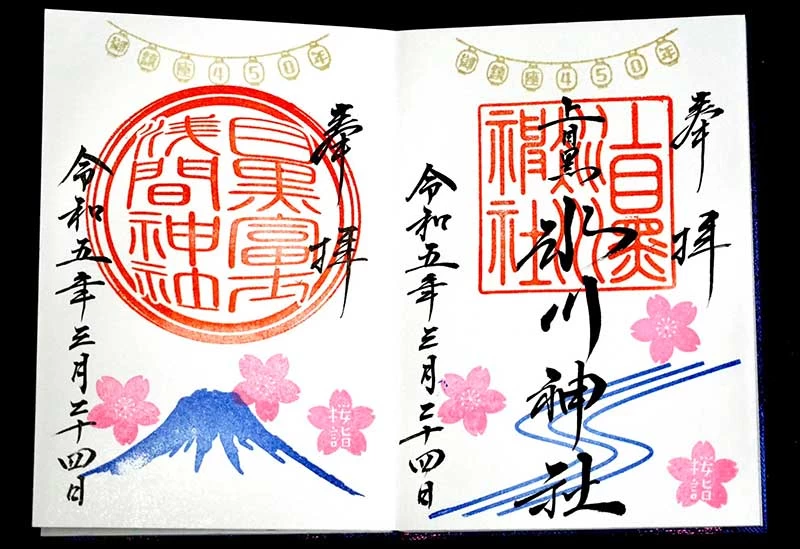 御鎮座450年
奉拝
上目黒
氷川
神社
上目黒
氷川神社
令和五年三月二十四日
桜詣
御鎮座450年
奉拝
目黒富士
浅間神社
令和五年三月二十四日
桜詣